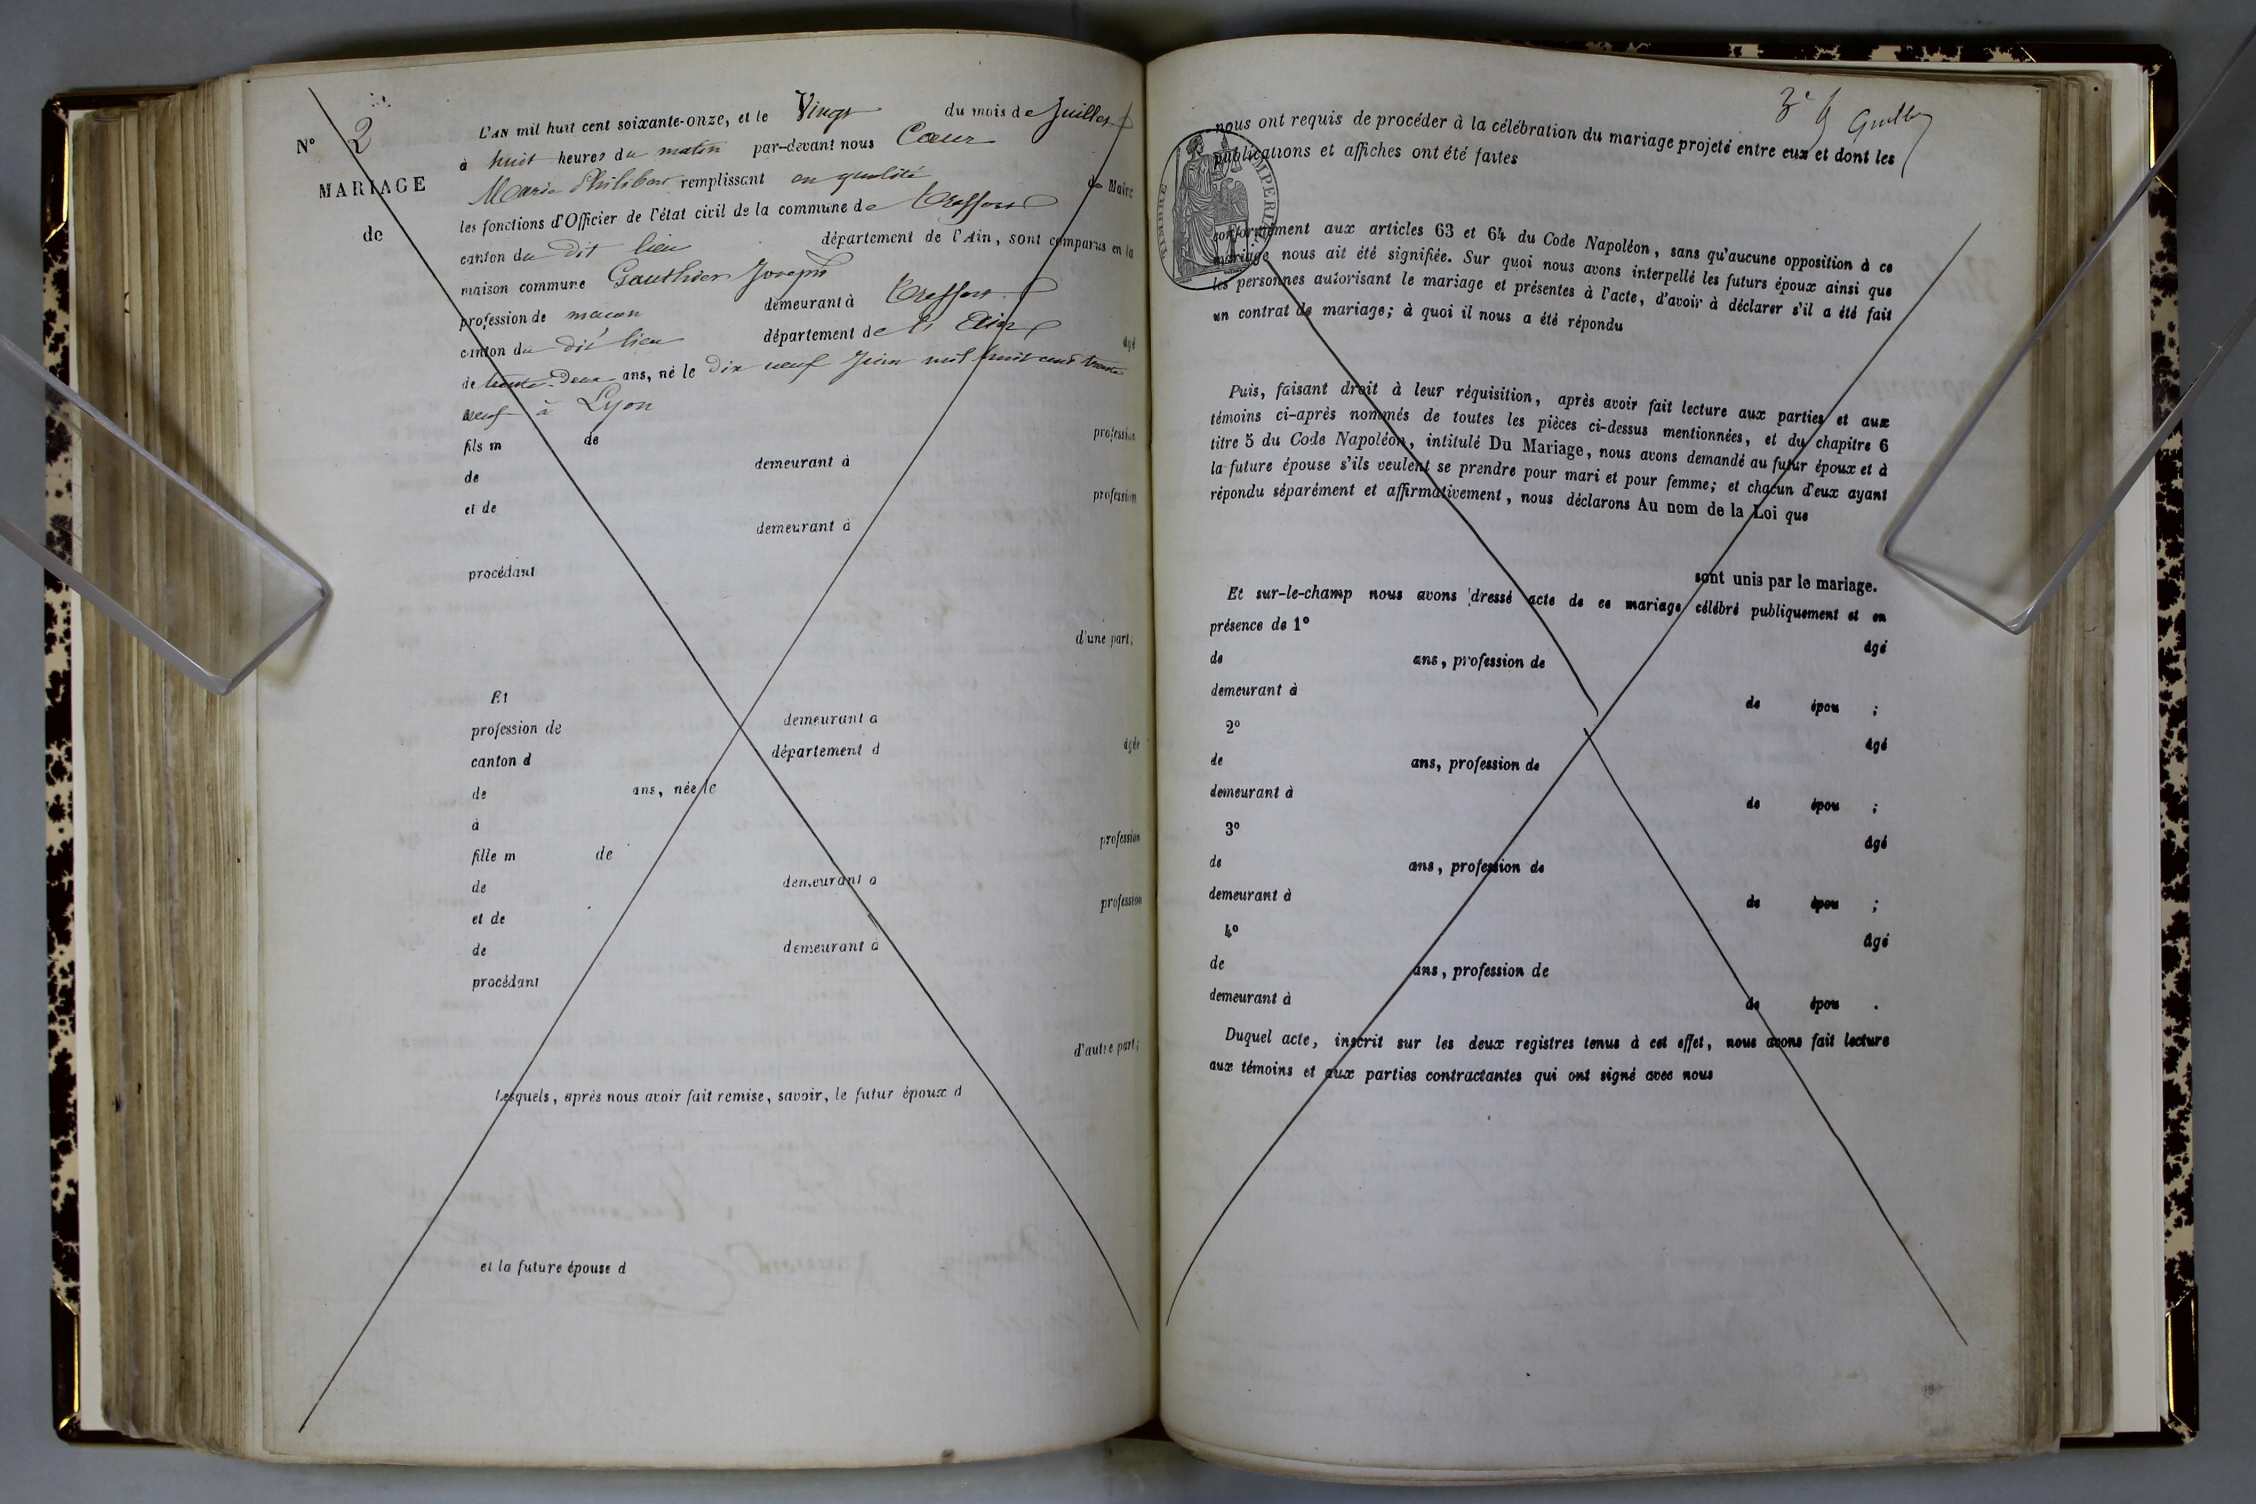 N° 2
MARIAGE
de
L'AN mil huit cent soixante-onze, et le Vingt du mois de Juillet
à huit heures du matin par-devant nous Cœur
Marie Philibert remplissant en qualité de Maire
les fonctions d'Officier de l'état civil de la commune de Treffort
canton du dit lieu département de l'Ain, sont comparus en la
maison commune Gauthier Joseph
profession de maçon demeurant à Treffort
canton du dit lieu département de l'Ain âgé
de trente-deux ans, né le dix neuf Juin mil huit cent trente
neuf à Lyon
fils m de profession
de demeurant à
et de profession
demeurant à
procédant
d'une part;
Et
profession de demeurant a
canton d département d âgée
de ans, née le
à
fille m de profession
de demeurant a
et de profession
de demeurant à
procédant
d'autre part;
Lesquels, après nous avoir fait remise, savoir, le futur époux d
et la future épouse d
3e
nous ont requis de procéder à la célébration du mariage projeté entre eux et dont les
publications et affiches ont été faites
TIMBRE IMPERIAL
conformément aux articles 63 et 64 du Code Napoléon, sans qu'aucune opposition à ce
mariage nous ait été signifiée. Sur quoi nous avons interpellé les futurs époux ainsi que
les personnes autorisant le mariage et présentes à l'acte, d'avoir à déclarer s'il a été fait
un contrat de mariage; à quoi il nous a été répondu
Puis, faisant droit à leur réquisition, après avoir fait lecture aux parties et aux
témoins ci-après nommés de toutes les pièces ci-dessus mentionnées, et du chapitre 6
titre 5 du Code Napoléon, intitulé Du Mariage, nous avons demandé au futur époux et à
la future épouse s'ils veulent se prendre pour mari et pour femme; et chacun d'eux ayant
répondu séparément et affirmativement, nous déclarons Au nom de la Loi que
sont unis par le mariage.
Et sur-le-champ nous avons dressé acte de ce mariage célébré publiquement et en
présence de 1° âgé
de ans, profession de
demeurant à de épou ;
2° âgé
de ans, profession de
demeurant à de épou ;
3° âgé
de ans, profession de
demeurant à de épou ;
4° âgé
de ans, profession de
demeurant à de épou .
Duquel acte, inscrit sur les deux registres tenus à cet effet, nous avons fait lecture
aux témoins et aux parties contractantes qui ont signé avec nous